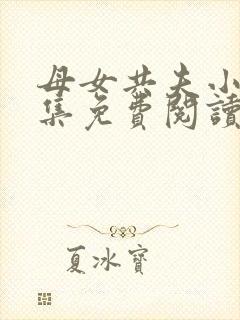 母女共夫小
集免費閱讀
夏冰寶